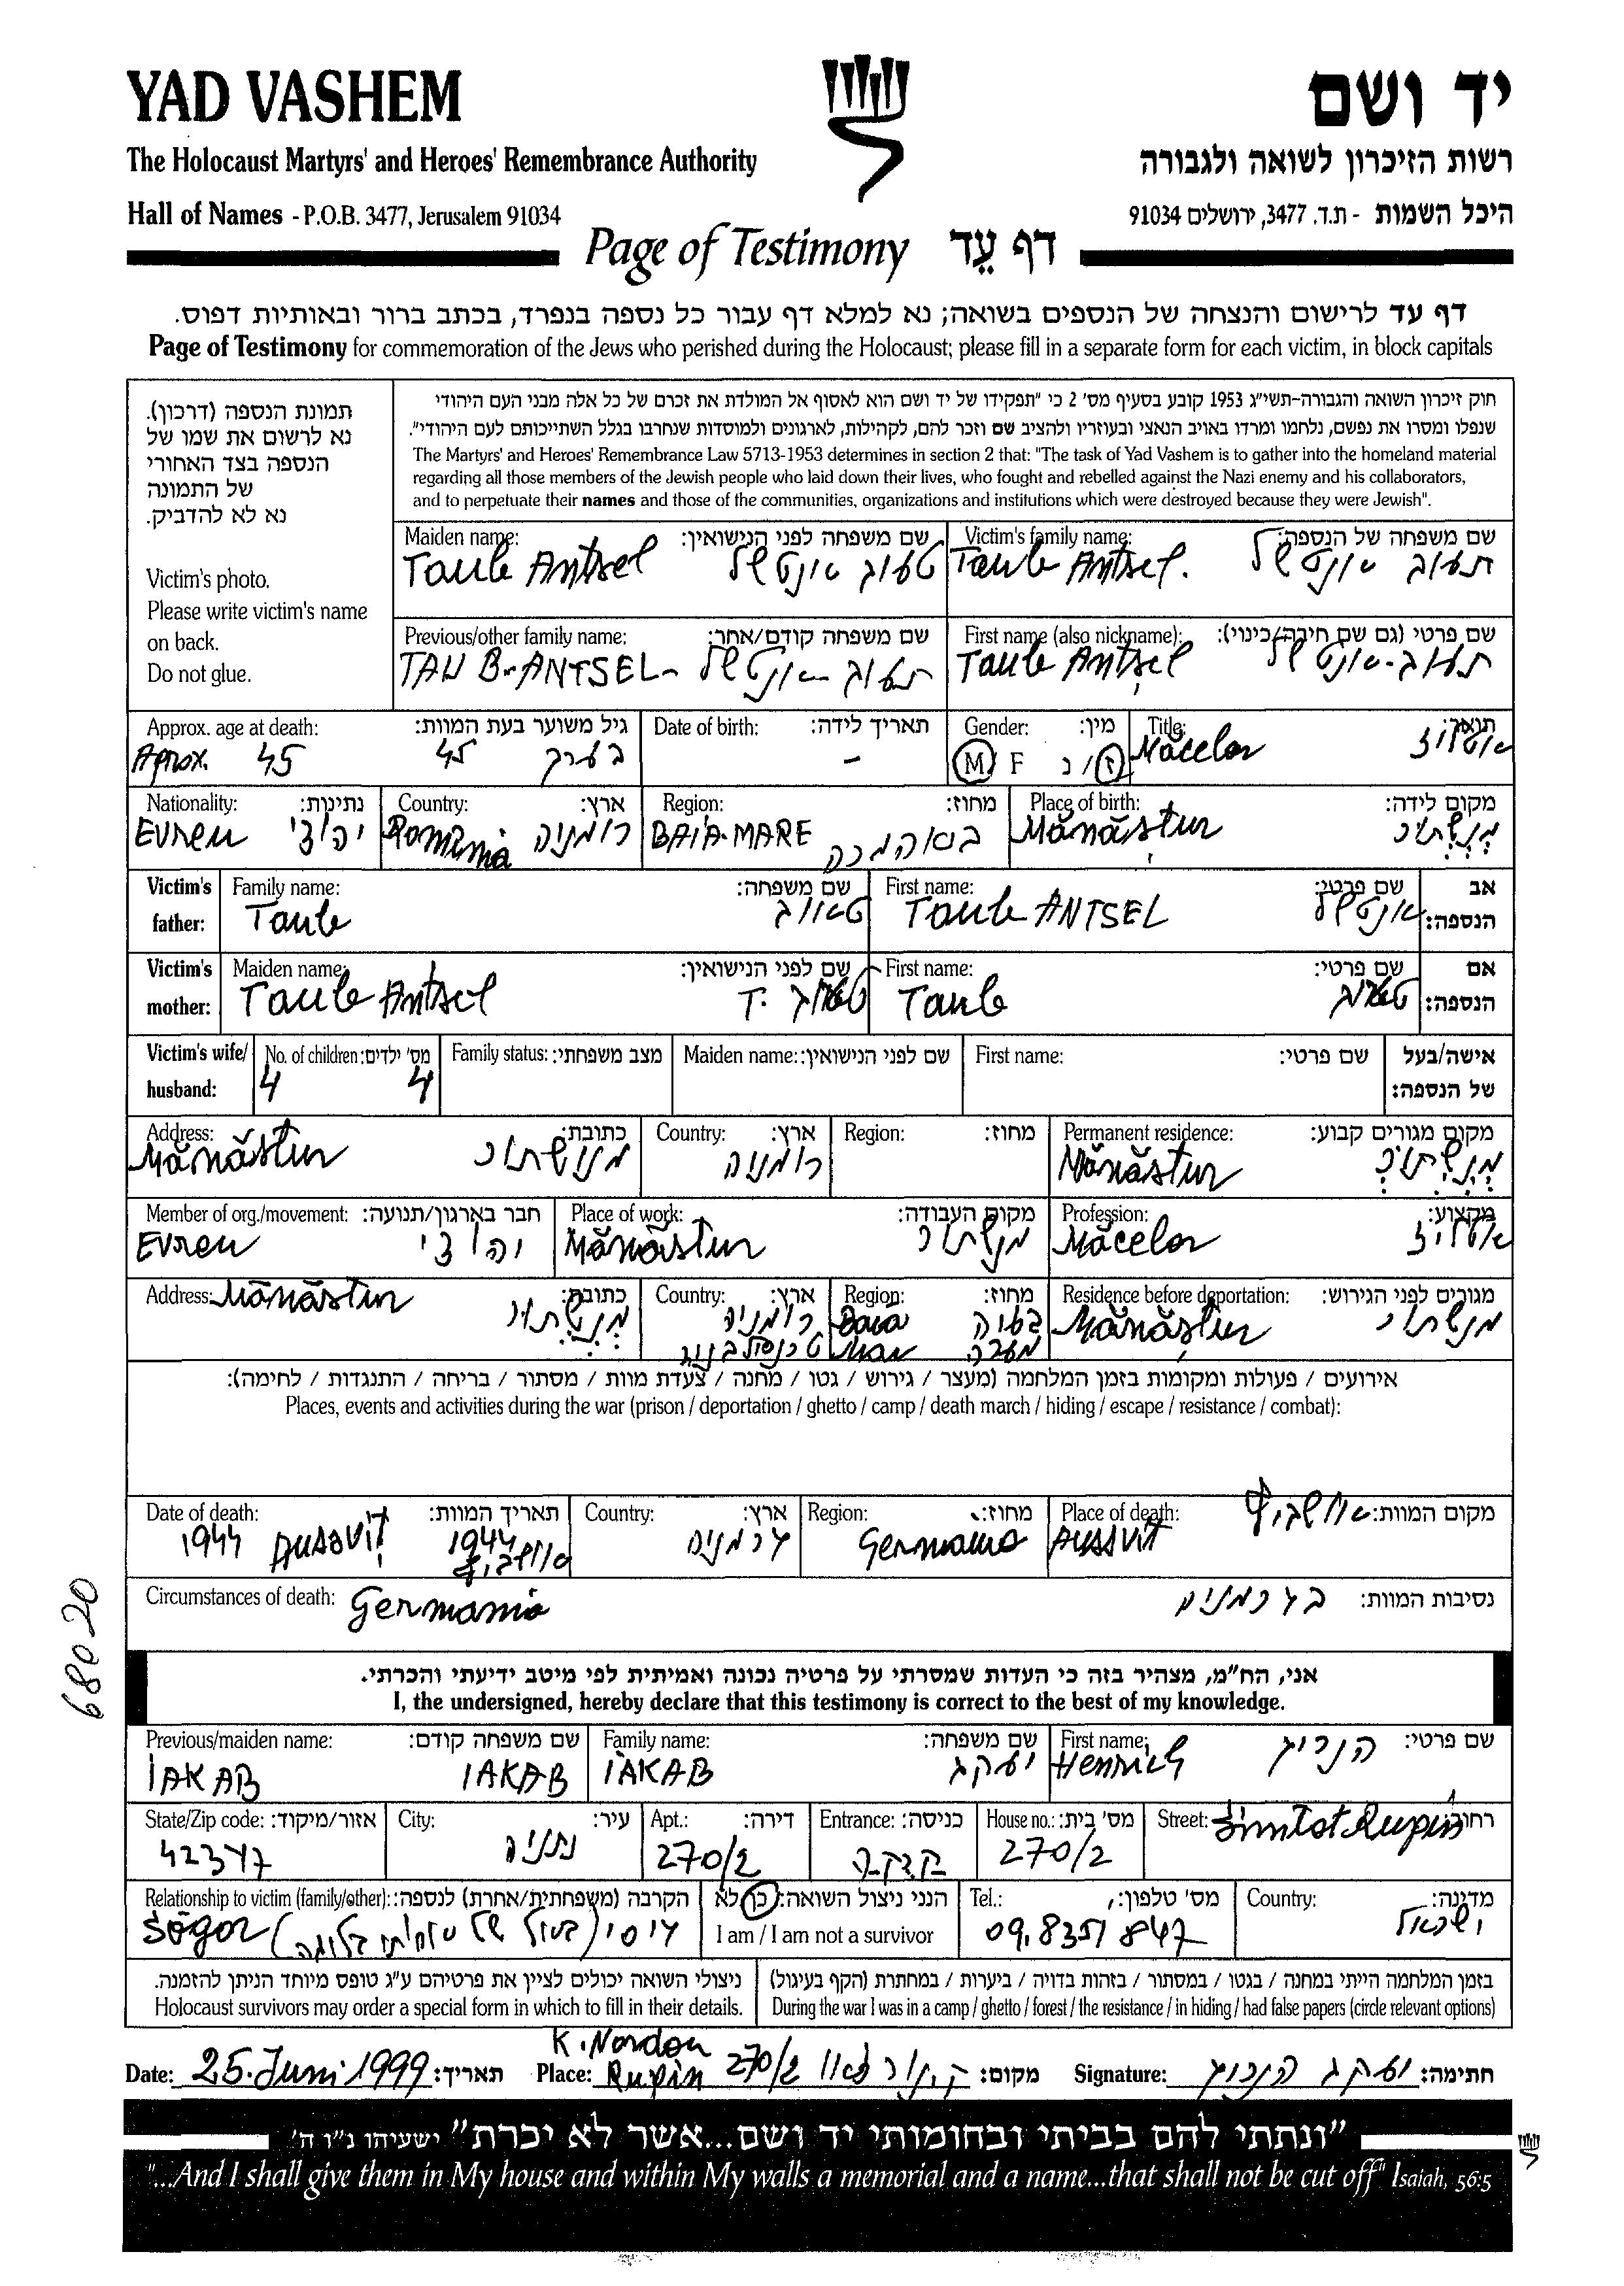 YAD VASHEM
יד ושם
The Holocaust Martyrs' and Heroes' Remembrance Authority
רשות הזיכרון לשואה ולגבורה
Hall of Names - P.O.B. 3477, Jerusalem 91034
היכל השמות - ת.ד. 3477, ירושלים 91034
Page of Testimony דף עֵד
דף עד לרישום והנצחה של הנספים בשואה; נא למלא דף עבור כל נספה בנפרד, בכתב ברור ובאותיות דפוס.
Page of Testimony for commemoration of the Jews who perished during the Holocaust; please fill in a separate form for each victim, in block capitals
תמונת הנספה (דרכון).
נא לרשום את שמו של
הנספה בצד האחורי
של התמונה
נא לא להדביק.
Victim's photo.
Please write victim's name
on back.
Do not glue.
חוק זיכרון השואה והגבורה-תשי"ג 1953 קובע בסעיף מס' 2 כי "תפקידו של יד ושם הוא לאסוף אל המולדת את זכרם של כל אלה מבני העם היהודי
שנפלו ומסרו את נפשם, נלחמו ומרדו באויב הנאצי ובעוזריו ולהציב שם וזכר להם, לקהילות, לארגונים ולמוסדות שנחרבו בגלל השתייכותם לעם היהודי".
The Martyrs' and Heroes' Remembrance Law 5713-1953 determines in section 2 that: "The task of Yad Vashem is to gather into the homeland material
regarding all those members of the Jewish people who laid down their lives, who fought and rebelled against the Nazi enemy and his collaborators,
and to perpetuate their names and those of the communities, organizations and institutions which were destroyed because they were Jewish".
Maiden name: שם משפחה לפני הנישואין: Victim's family name: שם משפחה של הנספה:
Taub Antsel טעוב אנטשל Taub Antsel. תעוב אנטשל
Previous/other family name: שם משפחה קודם/אחר: First name (also nickname): שם פרטי (גם שם חיבה/כינוי):
TAU B-ANTSEL- תעוב-אנטשל Taub Antsel תעוב-אנטשל
Approx. age at death: גיל משוער בעת המוות: Date of birth: תאריך לידה: Gender: מין: Title: תואר:
Aprox. 45 45 בערך - M F ז/נ Măcelar אטליז
Nationality: נתינות: Country: ארץ: Region: מחוז: Place of birth: מקום לידה:
Evreu יהודי Romania רומניה BAIA-MARE באהמרה Mănăștur מנשתור
Victim's father: Family name: שם משפחה: First name: שם פרטי: אב הנספה:
Taub טאווב Taub ANTSEL אנטשל
Victim's mother: Maiden name: שם לפני הנישואין: First name: שם פרטי: אם הנספה:
Taub Antsel Taub
Victim's wife/ husband: No. of children: מס' ילדים: Family status: מצב משפחתי: Maiden name: שם לפני הנישואין: First name: שם פרטי: אישה/בעל של הנספה:
4 4
Address: כתובת: Country: ארץ: Region: מחוז: Permanent residence: מקום מגורים קבוע:
Mănăstur מנושתור רומניה Mănăstur מנשתור
Member of org./movement: חבר בארגון/תנועה: Place of work: מקום העבודה: Profession: מקצוע:
Evreu יהודי Mănăstur מנשתור Măcelar אטליז
Address: כתובת: Country: ארץ: Region: מחוז: Residence before deportation: מגורים לפני הגירוש:
Mănăstur מנשתור רומניה Baia Mare בעיה מערה Mănăștur מנשתור
אירועים / פעולות ומקומות בזמן המלחמה (מעצר / גירוש / גטו / מחנה / צעדת מוות / מסתור / בריחה / התנגדות / לחימה):
Places, events and activities during the war (prison / deportation / ghetto / camp / death march / hiding / escape / resistance / combat):
Date of death: תאריך המוות: Country: ארץ: Region: מחוז: Place of death: מקום המוות:
1944 1944 גרמניה Germania אושביץ
Circumstances of death: נסיבות המוות:
Germania בגרמניה
68020
אני, הח"מ, מצהיר בזה כי העדות שמסרתי על פרטיה נכונה ואמיתית לפי מיטב ידיעתי והכרתי.
I, the undersigned, hereby declare that this testimony is correct to the best of my knowledge.
Previous/maiden name: שם משפחה קודם: Family name: שם משפחה: First name: שם פרטי:
IAKAB IAKAB IAKAB יעקב Henrich הנריך
State/Zip code: אזור/מיקוד: City: עיר: Apt.: דירה: Entrance: כניסה: House no.: מס' בית: Street: רחוב:
42347 נתניה 270/2 270/2 Rupin
Relationship to victim (family/other): הקרבה (משפחתית/אחרת) לנספה: הנני ניצול השואה: כן לא Tel.: מס' טלפון: Country: מדינה:
Sogor גיסי I am / I am not a survivor 09.8351847 ישראל
ניצולי השואה יכולים לציין את פרטיהם ע"ג טופס מיוחד הניתן להזמנה.
Holocaust survivors may order a special form in which to fill in their details.
בזמן המלחמה הייתי במחנה / בגטו / במסתור / בזהות בדויה / ביערות / במחתרת (הקף בעיגול)
During the war I was in a camp / ghetto / forest / the resistance / in hiding / had false papers (circle relevant options)
K. Nordau
Date: 25. Juni 1999 תאריך: Place: Rupin 270/2 מקום: Signature: יעקב הנריך חתימה:
"ונתתי להם בביתי ובחומותי יד ושם...אשר לא יכרת" ישעיהו נ"ו ה'
"...And I shall give them in My house and within My walls a memorial and a name...that shall not be cut off" Isaiah, 56:5